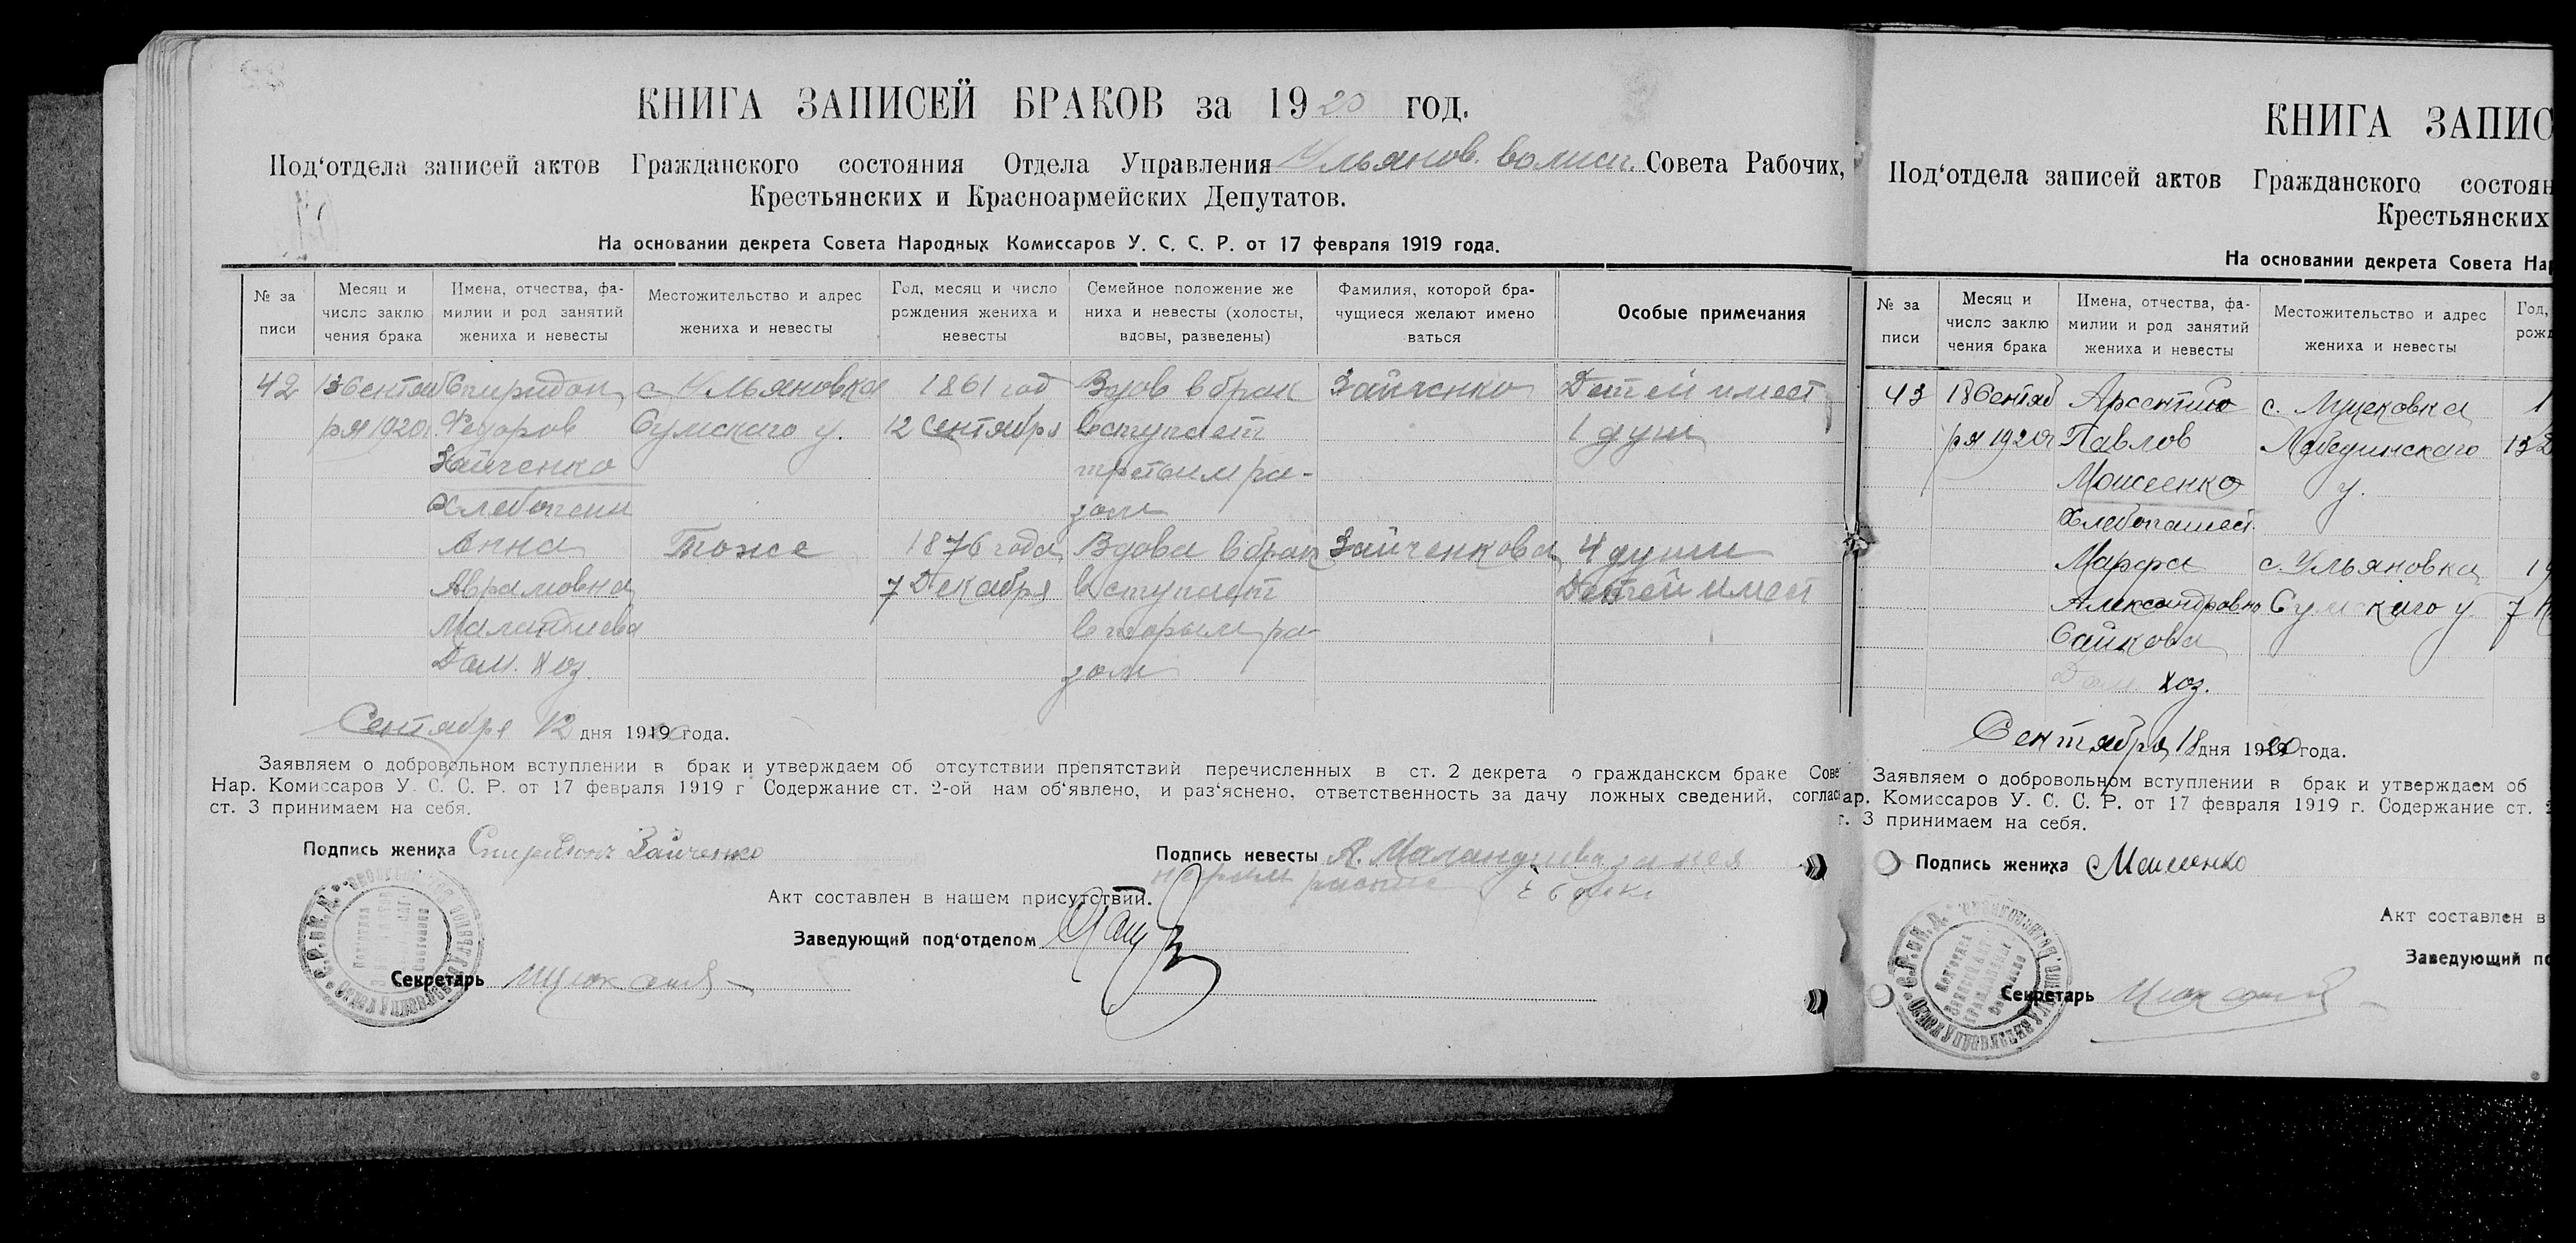 КНИГА ЗАПИСЕЙ БРАКОВ за 1920 год.
Под‘отдела записей актов Гражданского состояния Отдела Управления Ульянов. волисп. Совета Рабочих,
Крестьянских и Красноармейских Депутатов.
На основании декрета Совета Народных Комиссаров У. С. С. Р. от 17 февраля 1919 года.
№ за писи
Месяц и число заклю чения брака
Имена, отчества, фа- милии и род занятий жениха и невесты
Местожительство и адрес жениха и невесты
Год, месяц и число рождения жениха и невесты
Семейное положение же ниха и невесты (холосты, вдовы, разведены)
Фамилия, которой бра- чущиеся желают имено ваться
Особые примечания
42 Сентяб Спиридон с Ульяновка 1861 год Вдов в брак Зайченко Детей имеет
ря 1920г. Федоров Сумскаго у. 12 Сентября вступает 1 душ
Зайченко третьим ра-
зом
Анна Тоже 1876 года Вдова в брак Зайченкова 4 души
Аврамовна 7 Декабря вступает Детей имеет
вторым ра-
Дом. Хоз. зом
Сентября 12 дня 1919 года.
Заявляем о добровольном вступлении в брак и утверждаем об отсутствии препятствий перечисленных в ст. 2 декрета о гражданском браке Сове
Нар. Комиссаров У. С. С. Р. от 17 февраля 1919 г Содержание ст. 2-ой нам об‘явлено, и раз‘яснено, ответственность за дачу ложных сведений, соглас
ст. 3 принимаем на себя.
Подпись жениха Спиридонъ Зайченко
Подпись невесты А.
Акт составлен в нашем присутствии.
Заведующий под‘отделом
Секретарь
КНИГА ЗАПИС
Под‘отдела записей актов Гражданского состоян
Крестьянских
На основании декрета Совета Нар
№ за писи
Месяц и число заклю чения брака
Имена, отчества, фа- милии и род занятий жениха и невесты
Местожительство и адрес жениха и невесты
Год, рожд
43 18 Сентяб Арсентию с. 1
ря 1920г Павлов Лебединского 13
Моисеенко у.
Хлебопашец
Марфа с. Ульяновка 1
Александровна Сумскаго у. 7
Сайкова
Дом. Хоз.
Сентября 18 дня 1920 года.
Заявляем о добровольном вступлении в брак и утверждаем об
ар. Комиссаров У. С. С. Р. от 17 февраля 1919 г. Содержание ст.
г. 3 принимаем на себя.
Подпись жениха
Акт составлен в
Заведующий по
Секретарь